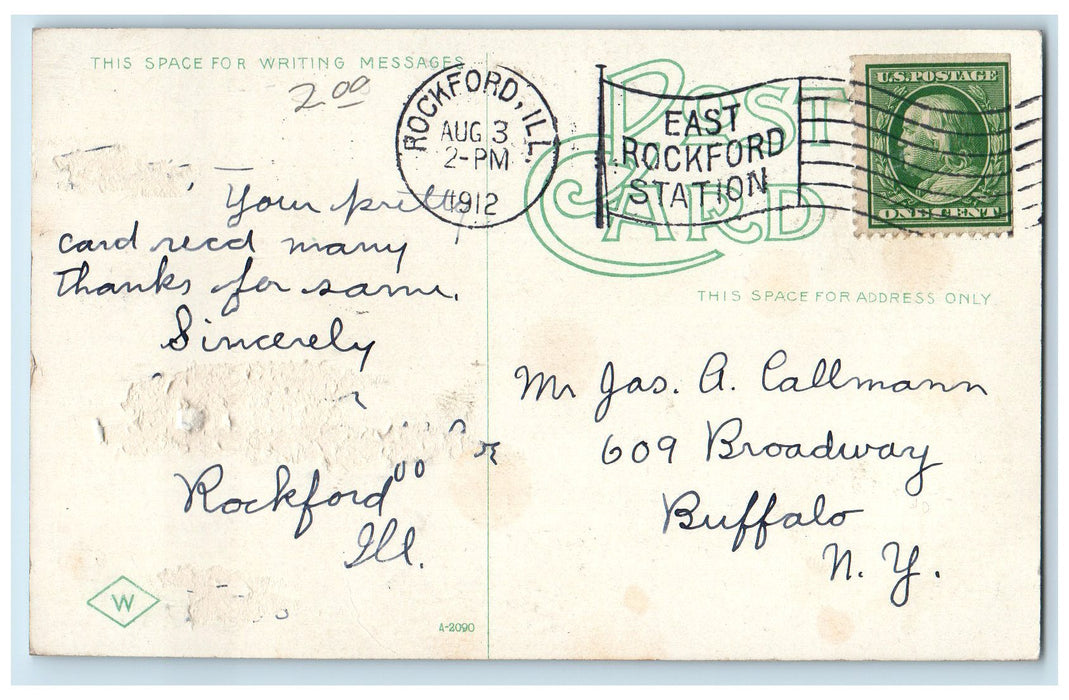 THIS SPACE FOR WRITING MESSAGES
2.00
Your pretty
card recd many
thanks for same.
Sincerely
Rockford
Ill.
W
A-2090
ROCKFORD, ILL.
AUG 3
2-PM
1912
EAST
ROCKFORD
STATION
POST
CARD
U.S. POSTAGE
ONE CENT
THIS SPACE FOR ADDRESS ONLY
Mr Jas. A. Callmann
609 Broadway
Buffalo
N. Y.